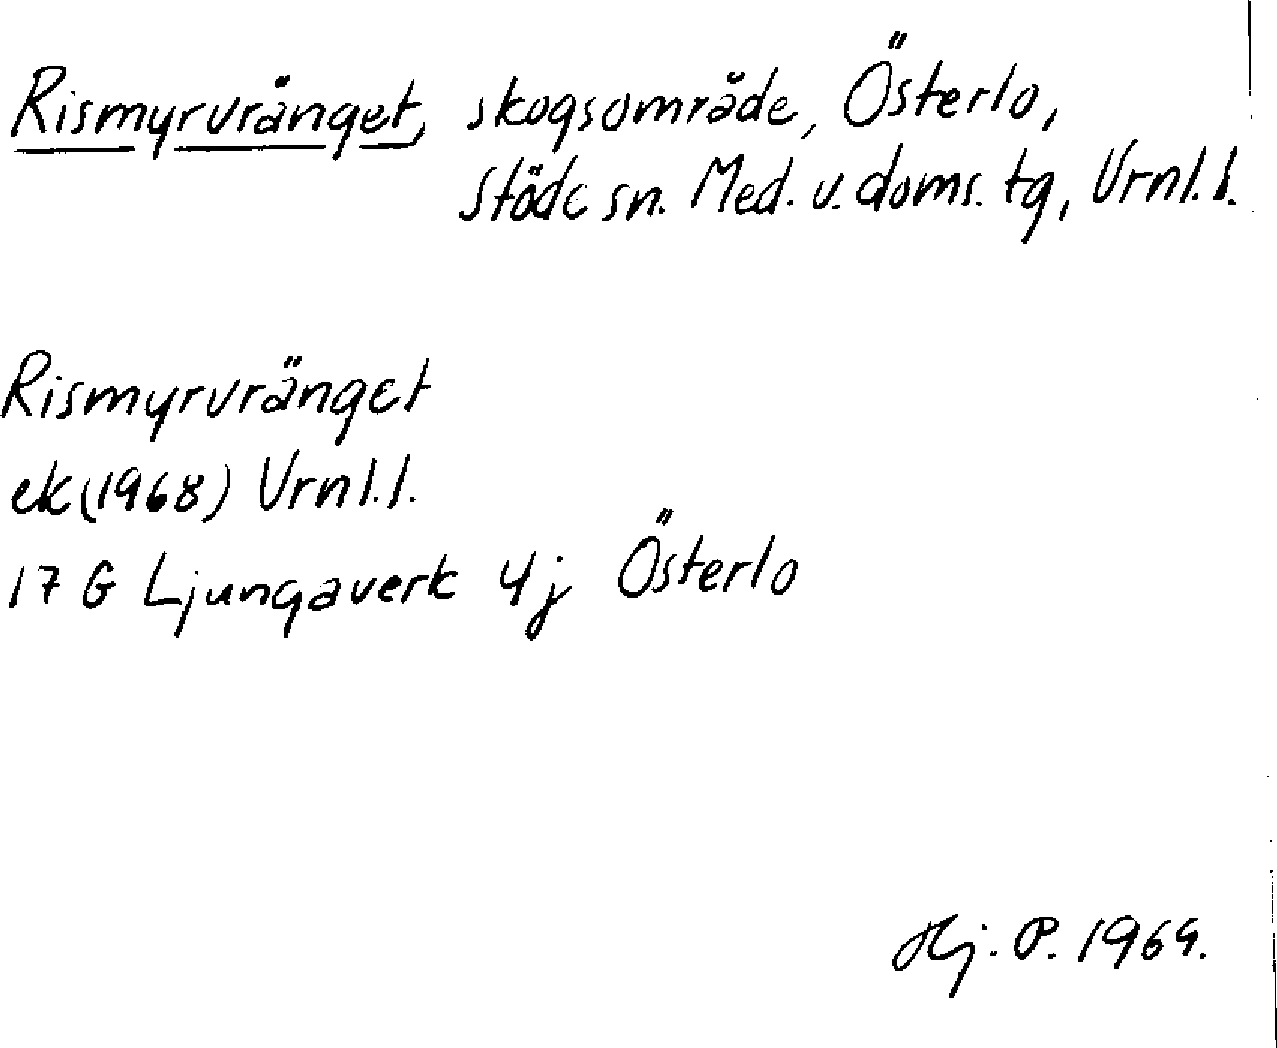 Rismyrvränget, skogsområde, Österlo,
Stöde sn. Med. v. doms. tg, Vrnl. l.
Rismyrvränget
ek (1968) Vrnl. l.
17 G Ljungaverk 4j Österlo
Hj. P. 1969.